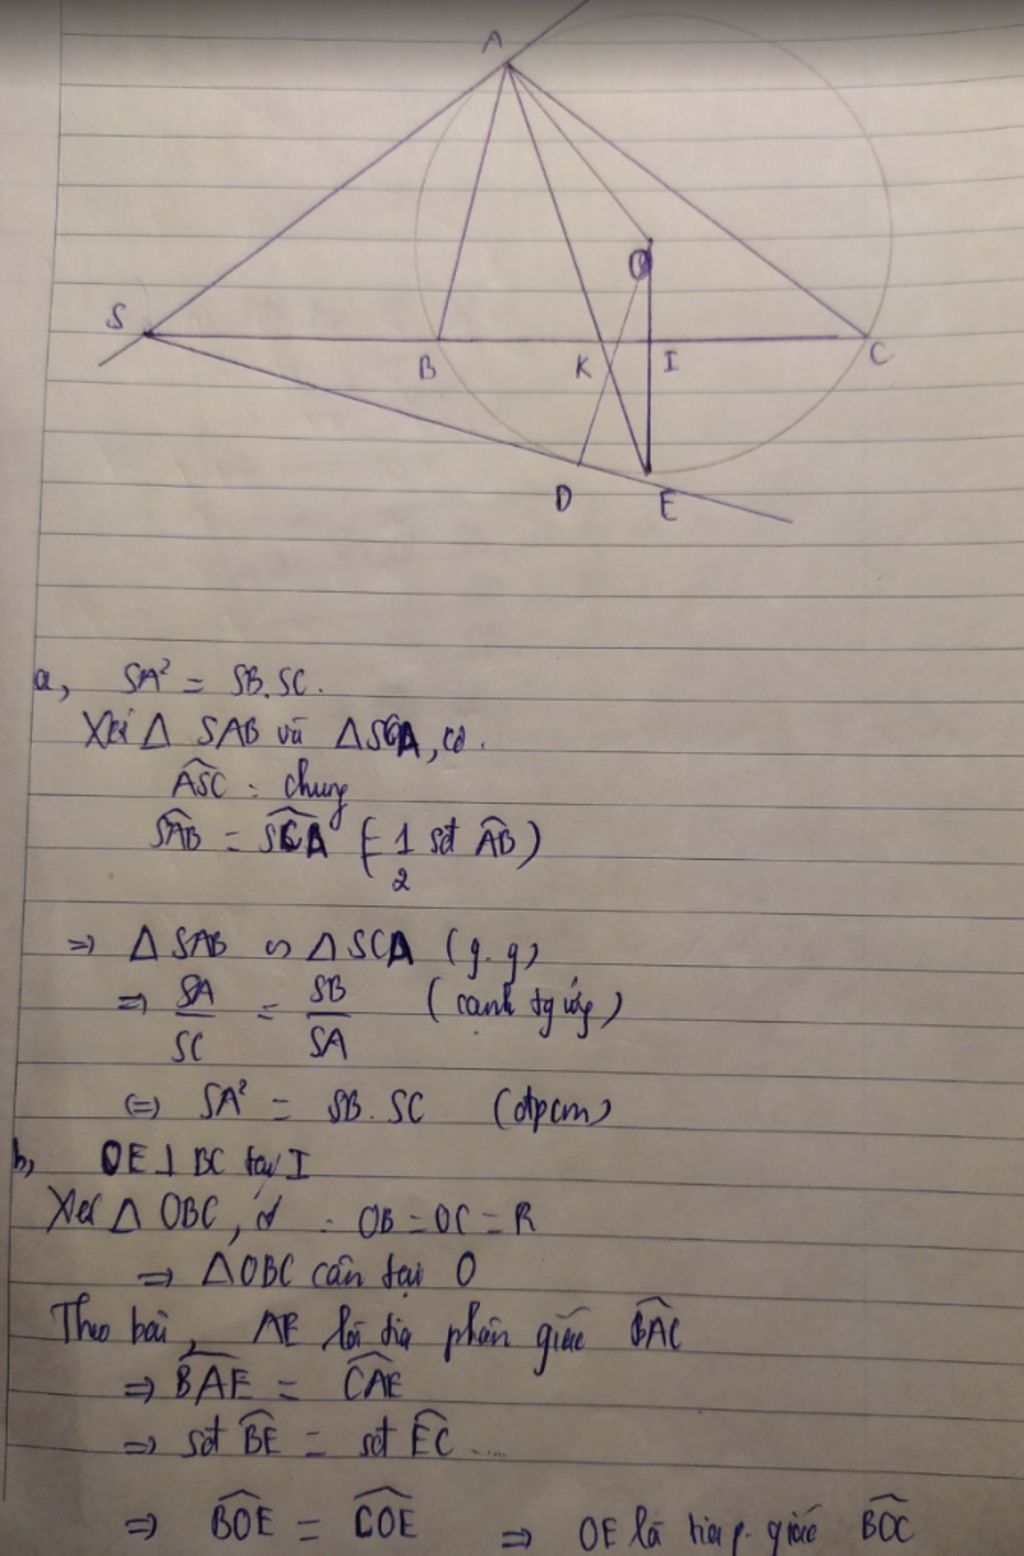 A
O
S
B
K
I
C
D
E
a, SA² = SB.SC.
Xét Δ SAB và ΔSCA, có.
ASC : chung
SAB = SCA (= 1/2 sđ AB)
⇒ Δ SAB ∽ Δ SCA (g.g)
⇒ SA/SC = SB/SA (cạnh tg ứng)
⇔ SA² = SB.SC (đpcm)
b, OE⊥BC tại I
Xét Δ OBC, có : OB = OC = R
⇒ ΔOBC cân tại O
Theo bài, AE là tia phân giác BAC
⇒ BAE = CAE
⇒ sđ BE = sđ EC ....
⇒ BOE = COE ⇒ OE là tia p. giác BOC